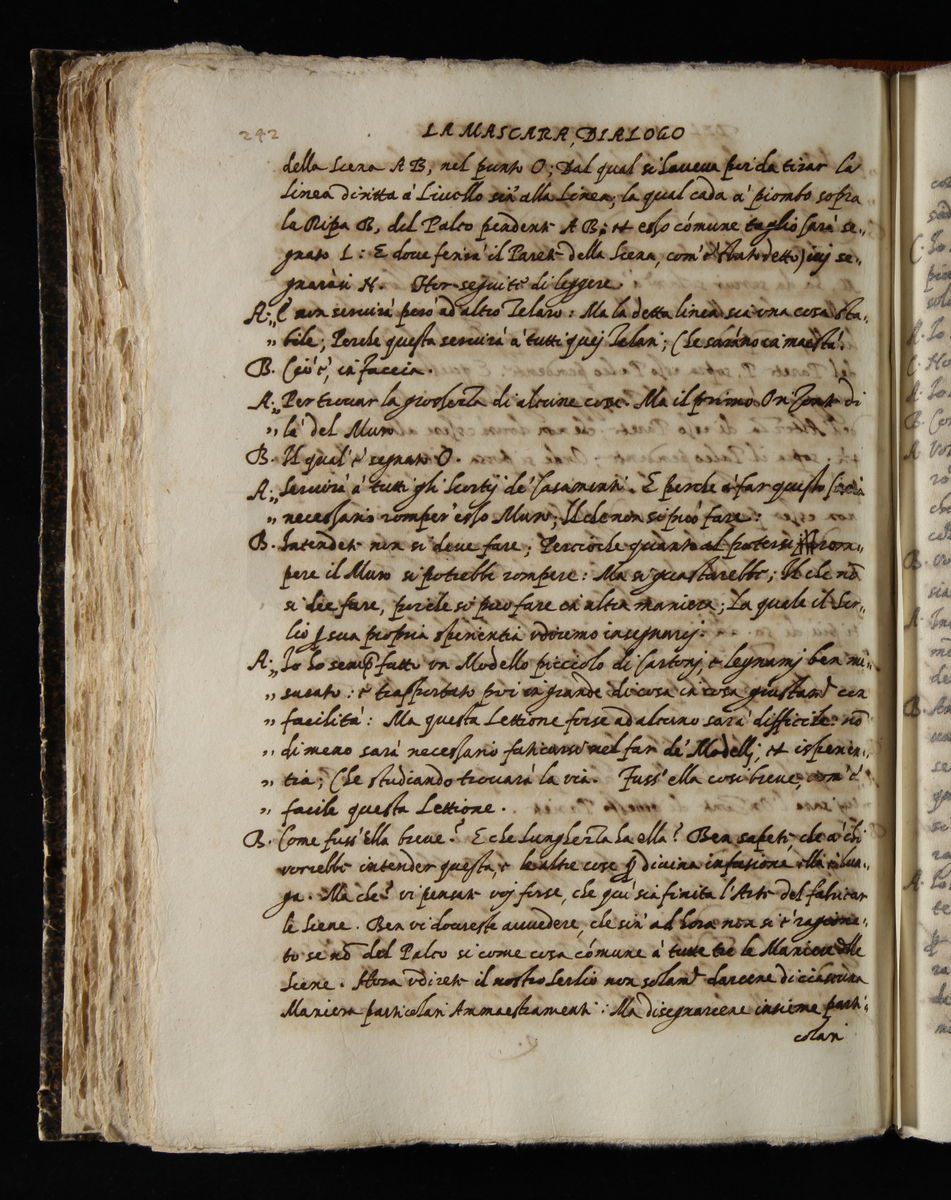 242
LA MASCARA, DIALOGO
della Scena A B, nel punto O; Dal qual si haveva poi da tirar la
Linea diritta à Livello sin' alla Linea, la qual cada à piombo sopra
la Ripa B, del Palco pendente A B; et esso cómune taglio sarà se-
gnato L: E dove feriva il Parete della Scena, com'è stato detto) ivj se-
gnaràsi N. Hor seguite di leggere.
A. „ E non servirà però ad altro Telaro: Ma la detta linea sia una cosa sta-
„ bile; Perche questa servirà à tutti quej Telari; Che saràno in maestà.
B. Cioè, in faccia.
A. „ Per trovar la grossezza di alcune cose. Ma il primo Orizonte di
„ là del Muro
B. Il qual'è segnato O.
A. „ Servirà à tutti gli Scortij de' Casamenti. E perche à far questo saria
„ necessario romper' esso Muro; Il che non si può fare:
B. Intendete non si deve fare; Percioche quanto al potersi rom-
pere il Muro si potrebbe rompere: Ma si guastarebbe; Il che nō
si dee fare, perche si può fare in altra maniera; La quale il Ser-
lio p sua propria sperientia udiremo insegnarcj.
A. „ Io hò semp fatto un Modello picciolo di Cartonj, e legnamj ben mi-
„ surato: e trasportato poi in grande di cosa in cosa giustamᵗᵉ con
„ facilità: Ma questa Lettione forse ad alcuno sarà difficile: nō
„ di meno sarà necessario faticarsi nel far de' Modellj et isperien-
„ tia; Che studiando trovarà la via. Fuss' ella così breve, com'è
„ facile questa Lettione.
B. Come fuss' ella breve? E che lunghezza ha ella? Ben sapete, che à chi
vorebbe intender questa, e le altre cose p divina infusione ella è lun-
ga. Ma che? vi pensate voj forse, che quì sia finita l'Arte del fabricar
le Scene. Ben vi dovreste avvedere, che sin' ad hora non si è ragiona-
to se nō del Palco si come cosa cómune à tutte tre le Maniere delle
Scene. Hora udirete il nostro Serlio non solamᵗᵉ darcene di ciascuna
Maniera particolari Ammaestramenti: Ma disegnarcene insieme parti-
colari